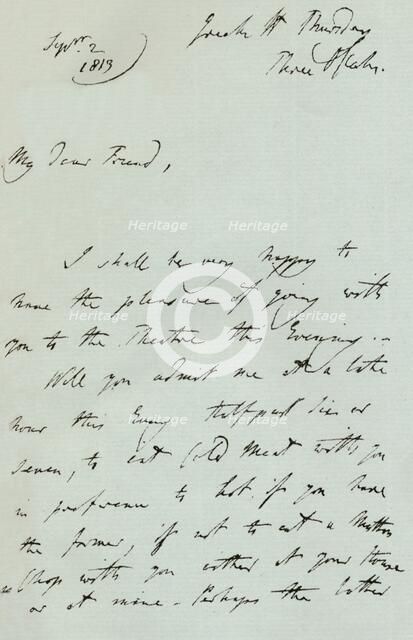 Sepr. 2
1813
Thursday
Three
My Dear Friend,
I shall be very happy to
have the pleasure of going with
you to the Theatre this Evening. -
Will you admit me at a late
hour this Eveng Half past Six or
Seven, to eat Cold Meat with you
in preference to hot if you have
the former, if not to eat a Mutton
Chop with you either at your House
or at mine - Perhaps the latter
Heritage Heritage
Heritage Heritage
Heritage Heritage